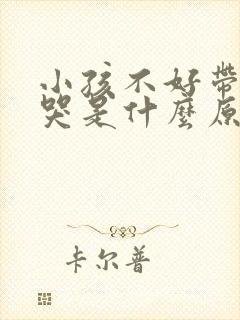 小孩不好帶
哭是什麼原
卡尔普